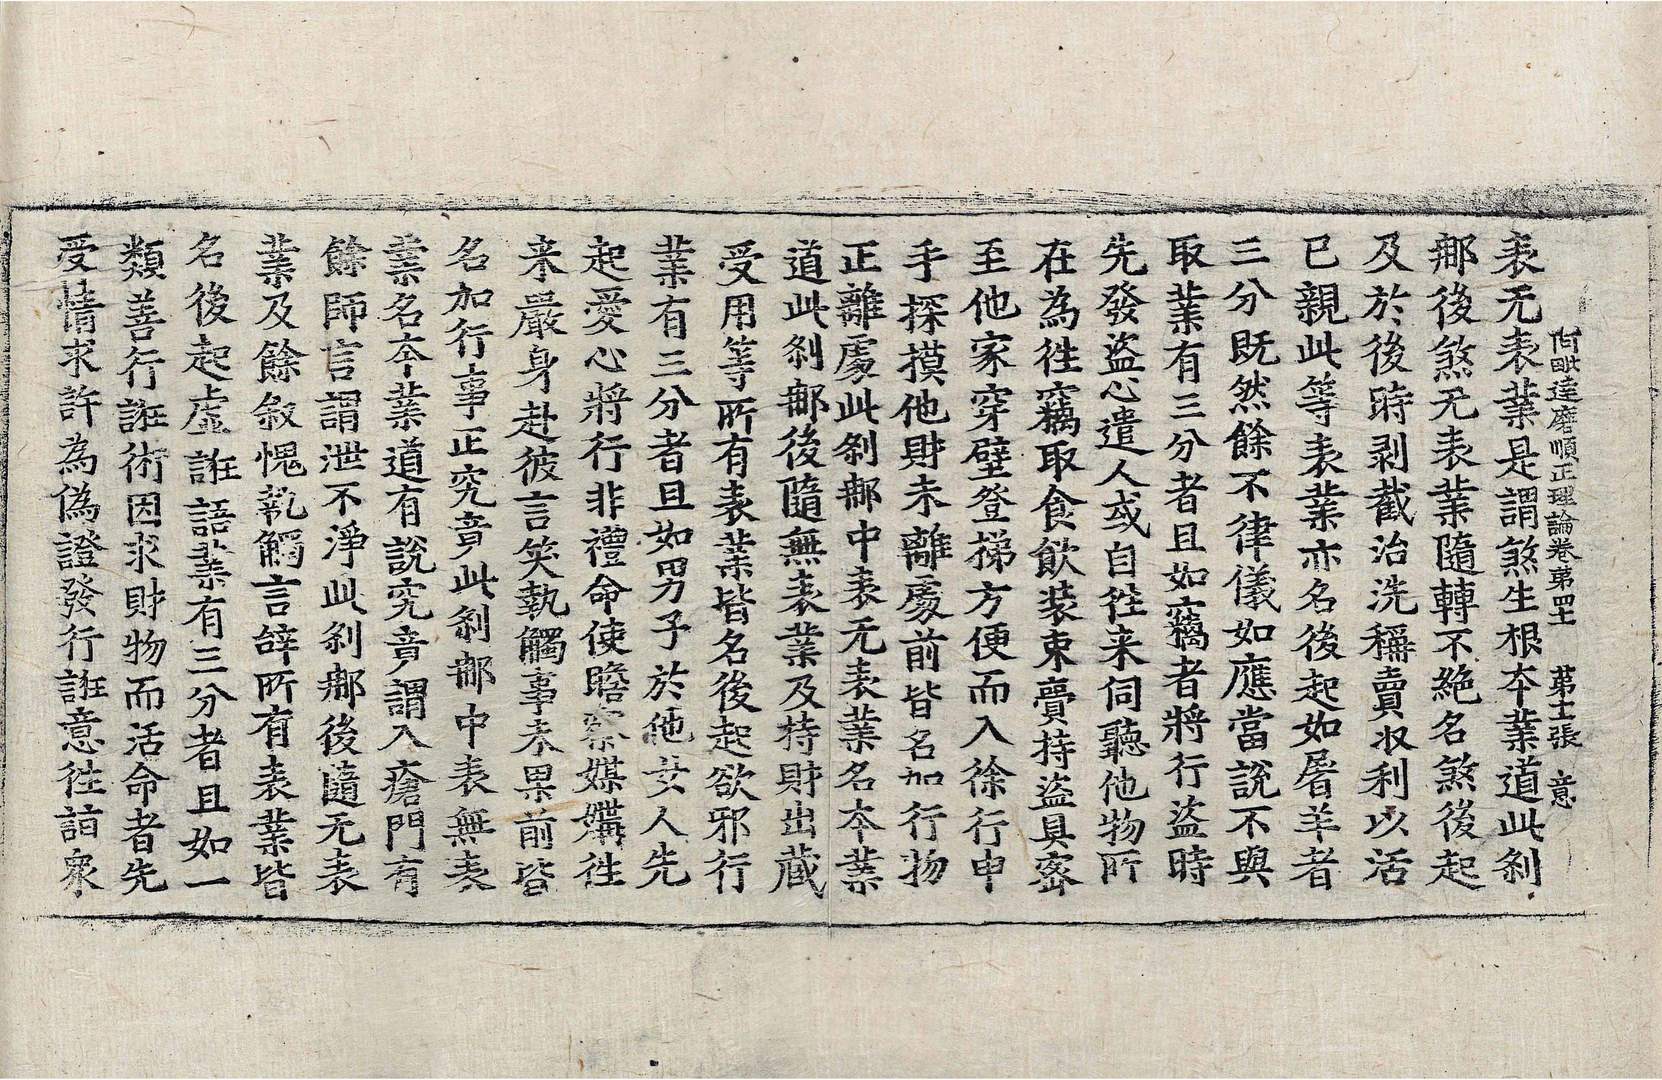 阿毗達磨順正理論卷第四十 第十二張 意
表无表業是謂煞生根夲業道此刹
𨙻後煞无表業隨轉不絶名煞後起
及於後時剥截治洗稱賣収利以活
已親此等表業亦名後起如屠羊者
三分旣然餘不律儀如應當說不與
取業有三分者且如竊者將行盗時
先發盗心遣人或自徃来伺聽他物所
在為徃竊取食飲裝束賷持盗具宻
至他家穿壁登梯方便而入徐行申
手探摸他財未離處前皆名加行物
正離處此刹𨙻中表无表業名夲業
道此刹𨙻後隨無表業及持財出藏
受用等所有表業皆名後起欲邪行
業有三分者且如男子於他女人先
起愛心將行非禮命使瞻察媒媾徃
来嚴身赴彼言笑執觸事未果前皆
名加行事正究竟此刹𨙻中表無表
業名夲業道有說究竟謂入瘡門有
餘師言謂泄不淨此刹𨙻後隨无表
業及餘敘愧執觸言辝所有表業皆
名後起虛誑語業有三分者且如一
類善行誑術因求財物而活命者先
受情求許為偽證發行誑意徃詣衆